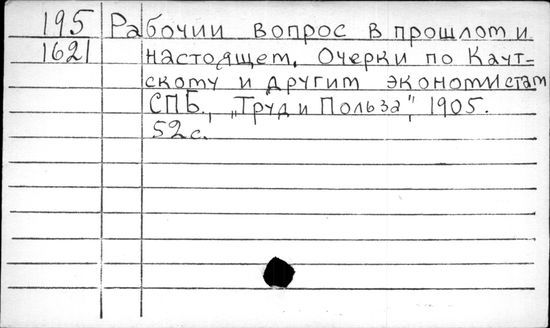 195 Рабочии вопрос в прошлом и
1621 настоящем. Очерки по Каут-
скому и другим экономистам
СПБ., „Труд и Польза", 1905.
52с.